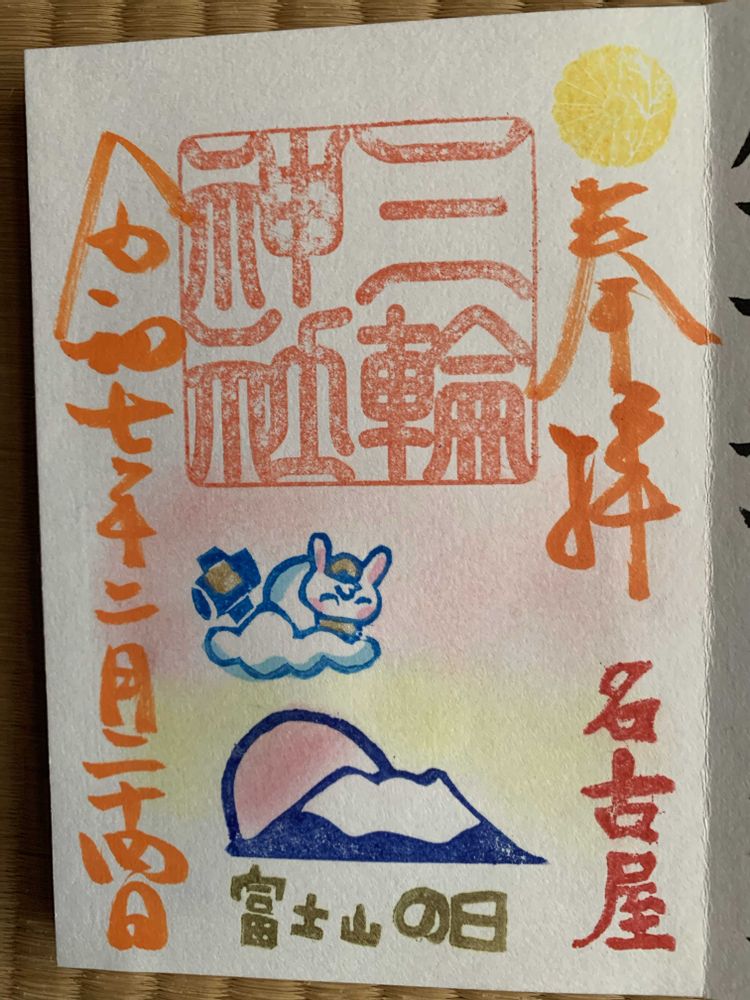 奉拝
名古屋
三輪
神社
富士山の日
令和七年二月二十四日